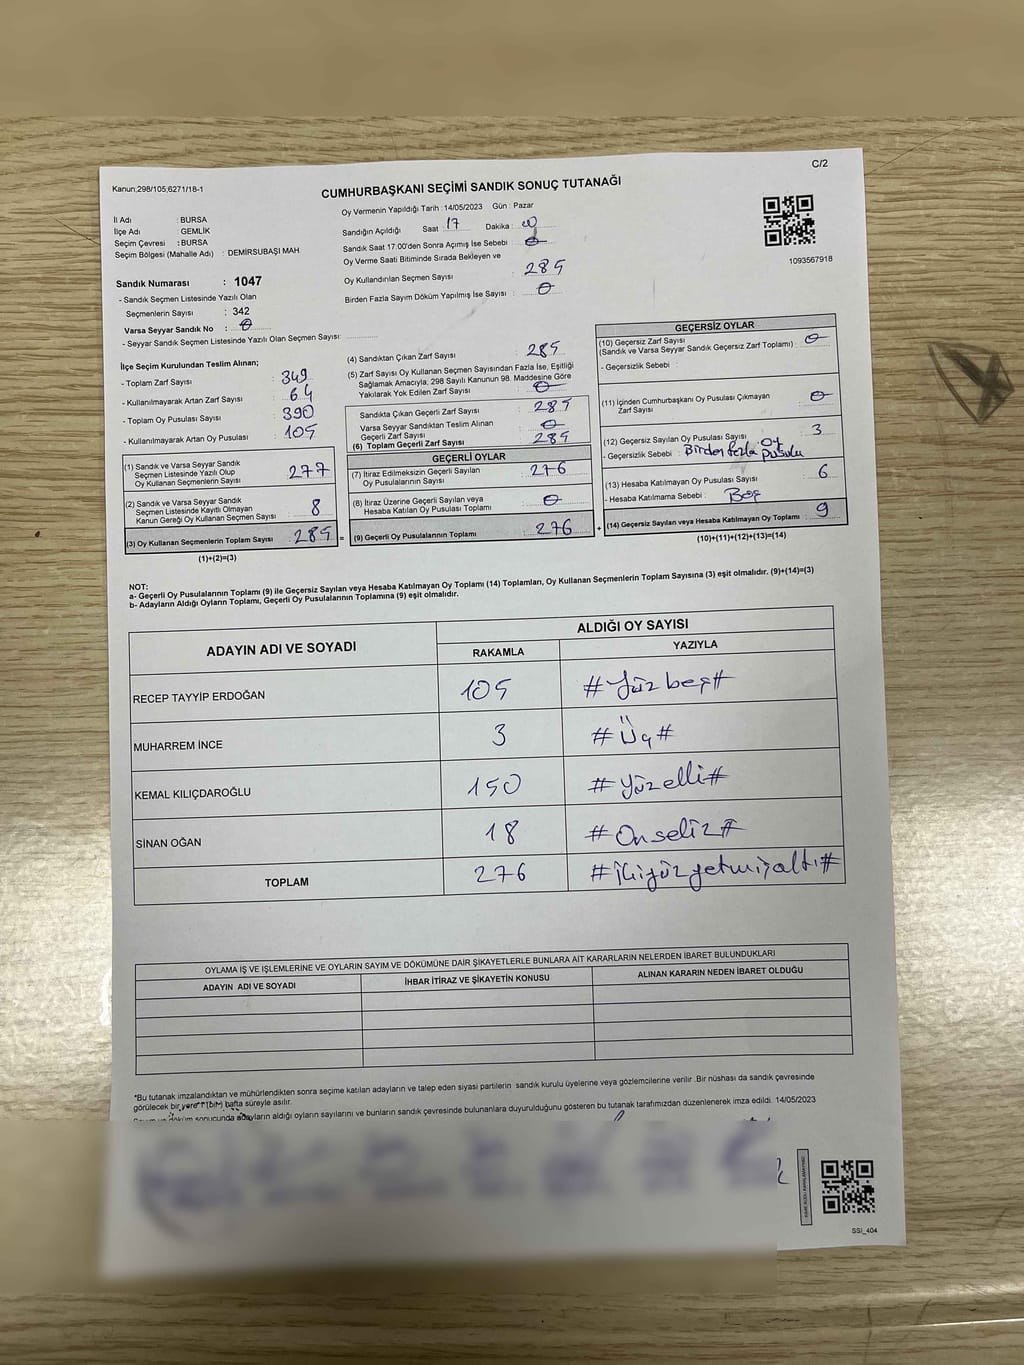 C/2
Kanun;298/105;6271/18-1
CUMHURBAŞKANI SEÇİMİ SANDIK SONUÇ TUTANAĞI
İl Adı : BURSA
İlçe Adı GEMLİK
Seçim Çevresi : BURSA
Seçim Bölgesi (Mahalle Adı) : DEMİRSUBAŞI MAH
Oy Vermenin Yapıldığı Tarih : 14/05/2023 Gün : Pazar
Sandığın Açıldığı Saat 17 Dakika : 00
Sandık Saat 17:00'den Sonra Açımış İse Sebebi : 0
Oy Verme Saati Bitiminde Sırada Bekleyen ve
Oy Kullandırılan Seçmen Sayısı : 285
Birden Fazla Sayım Döküm Yapılmış İse Sayısı : 0
1093567918
Sandık Numarası : 1047
- Sandık Seçmen Listesinde Yazılı Olan
Seçmenlerin Sayısı : 342
Varsa Seyyar Sandık No : 0
- Seyyar Sandık Seçmen Listesinde Yazılı Olan Seçmen Sayısı:
İlçe Seçim Kurulundan Teslim Alınan;
- Toplam Zarf Sayısı : 349
- Kullanılmayarak Artan Zarf Sayısı : 64
- Toplam Oy Pusulası Sayısı : 390
- Kullanılmayarak Artan Oy Pusulası : 105
(1) Sandık ve Varsa Seyyar Sandık
Seçmen Listesinde Yazılı Olup
Oy Kullanan Seçmenlerin Sayısı : 277
(2) Sandık ve Varsa Seyyar Sandık
Seçmen Listesinde Kayıtlı Olmayan
Kanun Gereği Oy Kullanan Seçmen Sayısı : 8
(3) Oy Kullanan Seçmenlerin Toplam Sayısı : 285 =
(1)+(2)=(3)
(4) Sandıktan Çıkan Zarf Sayısı : 285
(5) Zarf Sayısı Oy Kullanan Seçmen Sayısından Fazla İse, Eşitliği
Sağlamak Amacıyla; 298 Sayılı Kanunun 98. Maddesine Göre
Yakılarak Yok Edilen Zarf Sayısı : 0
Sandıkta Çıkan Geçerli Zarf Sayısı : 285
Varsa Seyyar Sandıktan Teslim Alınan
Geçerli Zarf Sayısı : 0
(6) Toplam Geçerli Zarf Sayısı : 285
GEÇERLİ OYLAR
(7) İtiraz Edilmeksizin Geçerli Sayılan
Oy Pusulalarının Sayısı : 276
(8) İtiraz Üzerine Geçerli Sayılan veya
Hesaba Katılan Oy Pusulası Toplamı : 0
(9) Geçerli Oy Pusulalarının Toplamı : 276 +
GEÇERSİZ OYLAR
(10) Geçersiz Zarf Sayısı : 0
(Sandık ve Varsa Seyyar Sandık Geçersiz Zarf Toplamı)
- Geçersizlik Sebebi :
(11) İçinden Cumhurbaşkanı Oy Pusulası Çıkmayan
Zarf Sayısı : 0
(12) Geçersiz Sayılan Oy Pusulası Sayısı : 3
- Geçersizlik Sebebi : Birden fazla oy pusulu
(13) Hesaba Katılmayan Oy Pusulası Sayısı : 6
- Hesaba Katılmama Sebebi : Boş
(14) Geçersiz Sayılan veya Hesaba Katılmayan Oy Toplamı : 9
(10)+(11)+(12)+(13)=(14)
NOT:
a- Geçerli Oy Pusulalarının Toplamı (9) ile Geçersiz Sayılan veya Hesaba Katılmayan Oy Toplamı (14) Toplamları, Oy Kullanan Seçmenlerin Toplam Sayısına (3) eşit olmalıdır. (9)+(14)=(3)
b- Adayların Aldığı Oyların Toplamı, Geçerli Oy Pusulalarının Toplamına (9) eşit olmalıdır.
ADAYIN ADI VE SOYADI ALDIĞI OY SAYISI
RAKAMLA YAZIYLA
RECEP TAYYİP ERDOĞAN 105 #Yüz beş#
MUHARREM İNCE 3 #Üç#
KEMAL KILIÇDAROĞLU 150 #Yüzelli#
SİNAN OĞAN 18 #Onsekiz#
TOPLAM 276 #İkiyüzyetmişaltı#
OYLAMA İŞ VE İŞLEMLERİNE VE OYLARIN SAYIM VE DÖKÜMÜNE DAİR ŞİKAYETLERLE BUNLARA AİT KARARLARIN NELERDEN İBARET BULUNDUKLARI
ADAYIN ADI VE SOYADI İHBAR İTİRAZ VE ŞİKAYETİN KONUSU ALINAN KARARIN NEDEN İBARET OLDUĞU
*Bu tutanak imzalandıktan ve mühürlendikten sonra seçime katılan adayların ve talep eden siyasi partilerin sandık kurulu üyelerine veya gözlemcilerine verilir .Bir nüshası da sandık çevresinde
görülecek bir yere 1 (bir) hafta süreyle asılır.
sonucunda adayların aldığı oyların sayılarını ve bunların sandık çevresinde bulunanlara duyurulduğunu gösteren bu tutanak tarafımızdan düzenlenerek imza edildi. 14/05/2023
SSİ_404